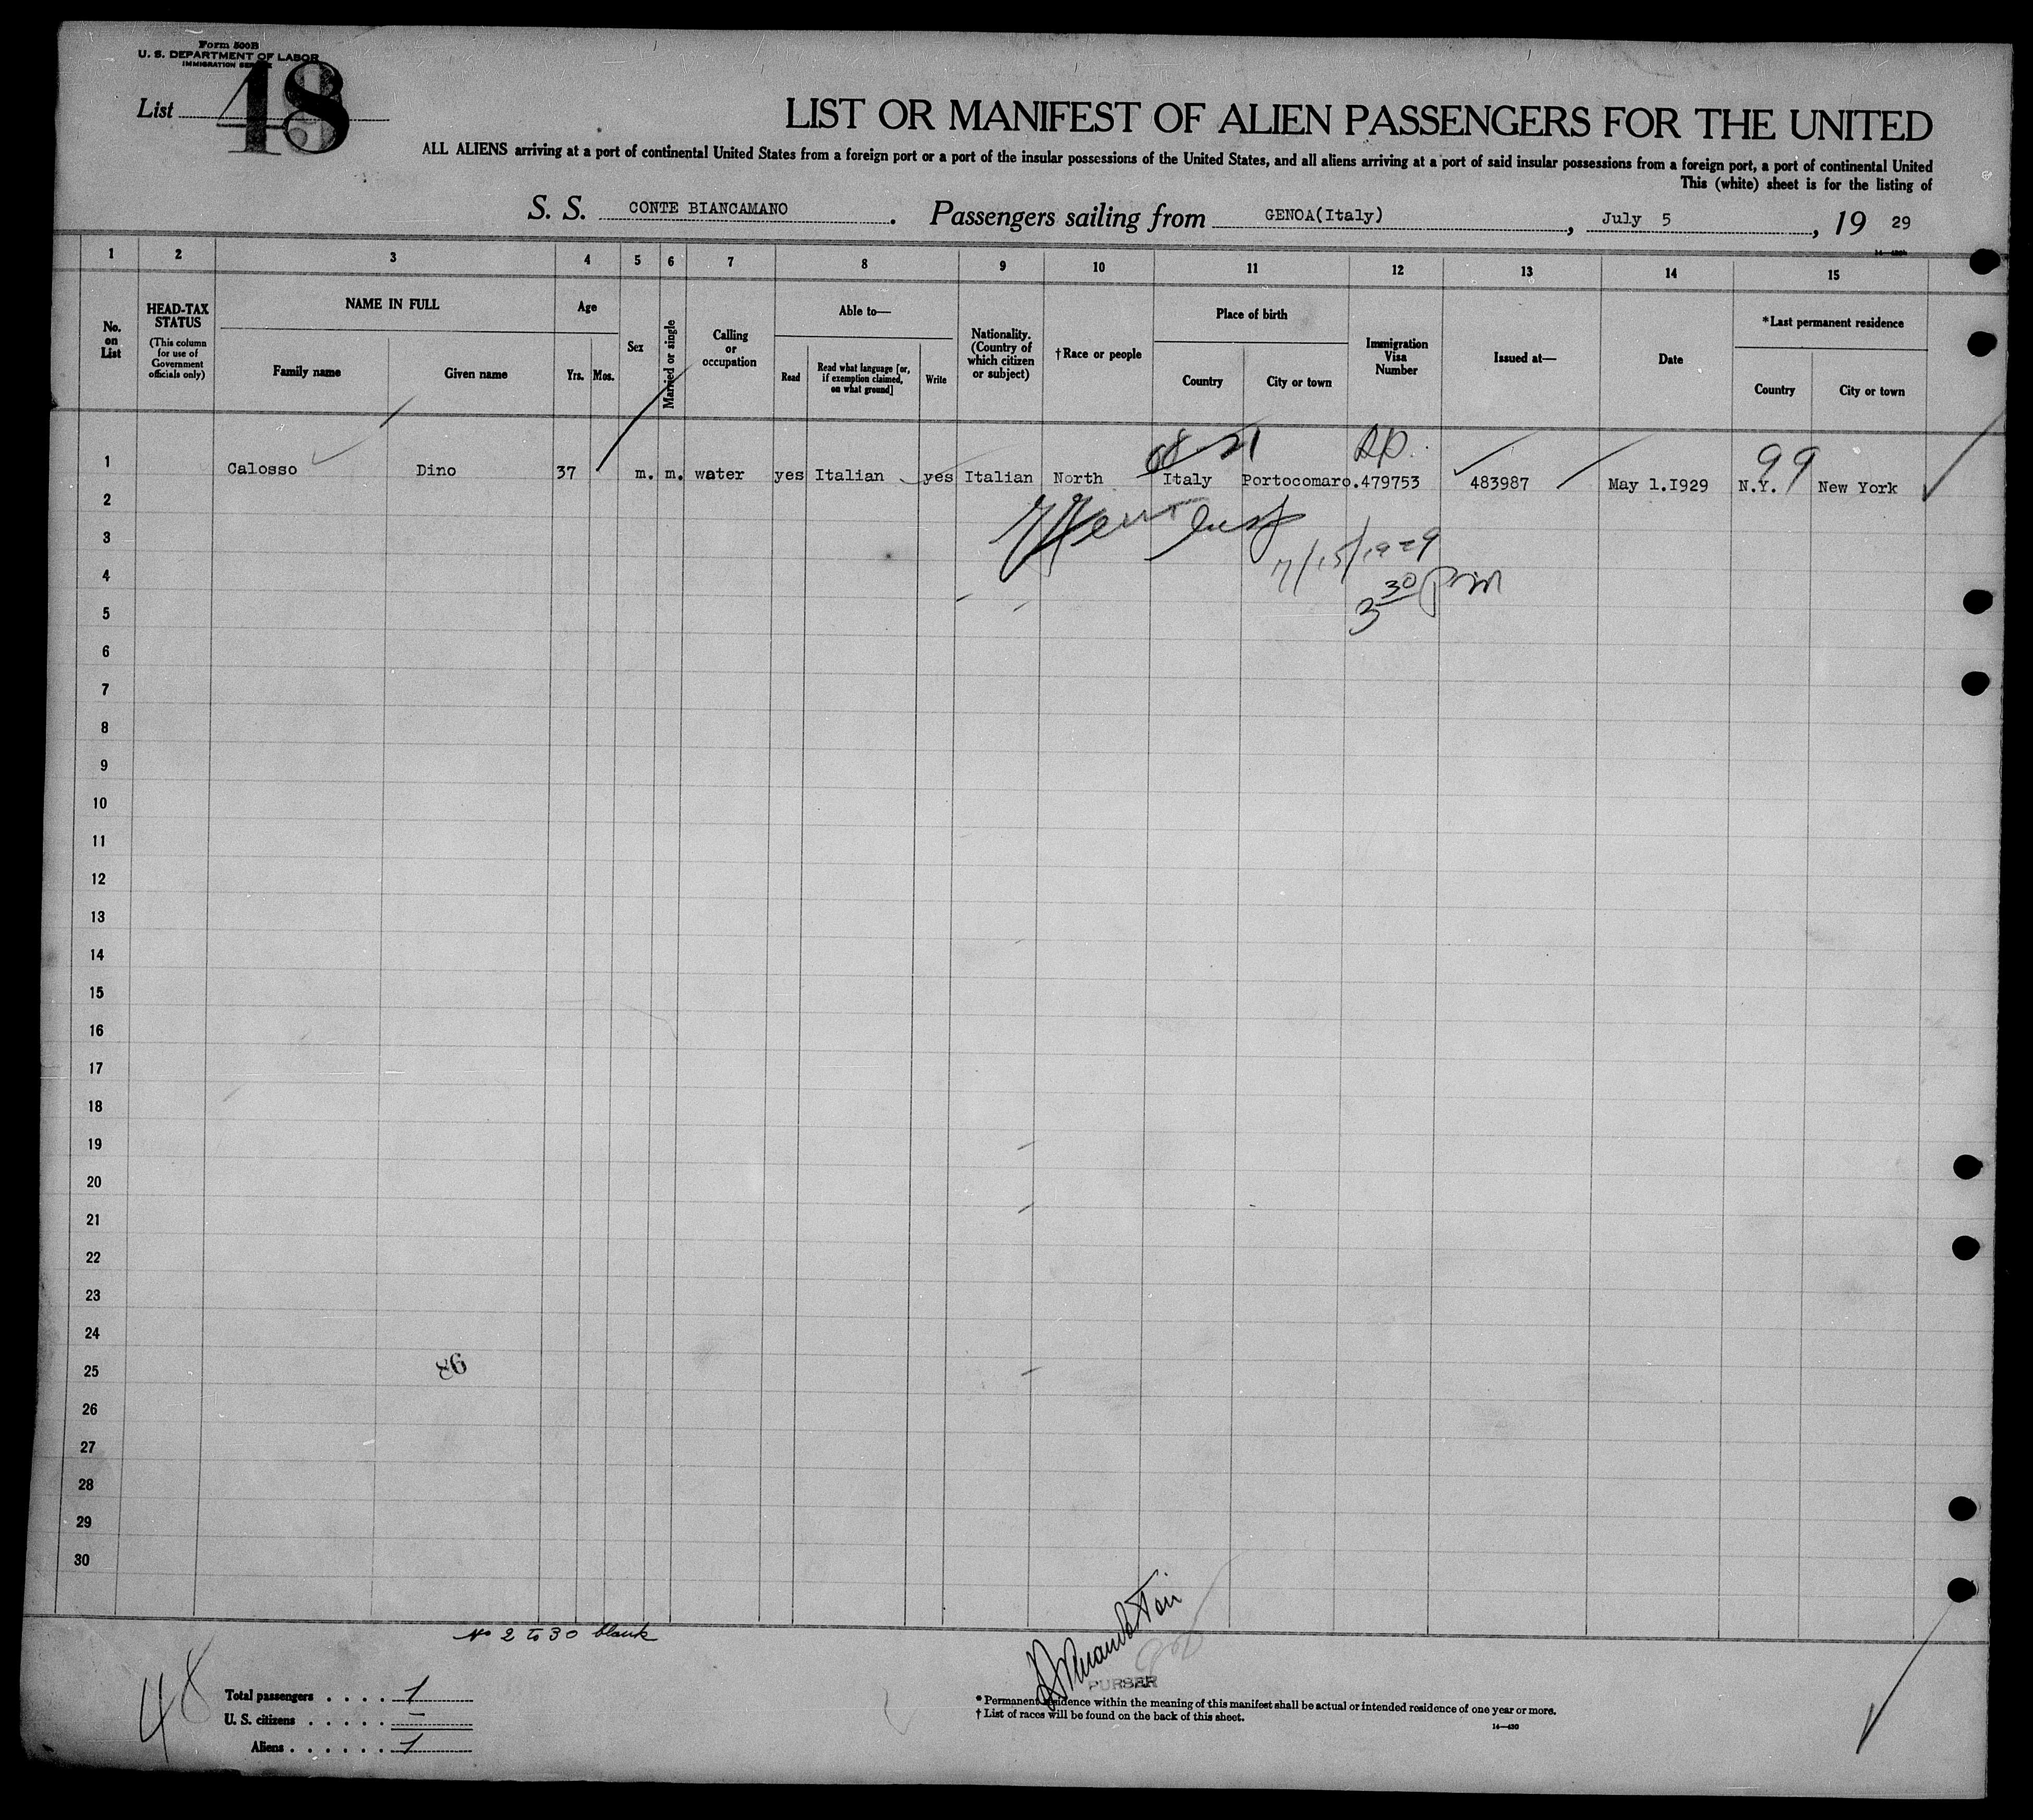 Form 500B
U. S. DEPARTMENT OF LABOR
IMMIGRATION SERVICE
List 48
LIST OR MANIFEST OF ALIEN PASSENGERS FOR THE UNITED
ALL ALIENS arriving at a port of continental United States from a foreign port or a port of the insular possessions of the United States, and all aliens arriving at a port of said insular possessions from a foreign port, a port of continental United
This (white) sheet is for the listing of
S. S. CONTE BIANCAMANO. Passengers sailing from GENOA(Italy), July 5, 19 29
1 2 3 4 5 6 7 8 9 10 11 12 13 14 15
No. on List
HEAD-TAX STATUS
(This column for use of Government officials only)
NAME IN FULL
Family name Given name
Age
Yrs. Mos.
Sex
Married or single
Calling or occupation
Able to—
Read
Read what language [or, if exemption claimed, on what ground]
Write
Nationality. (Country of which citizen or subject)
†Race or people
Place of birth
Country City or town
Immigration Visa Number
Issued at—
Date
*Last permanent residence
Country City or town
R.P.
99
1 Calosso Dino 37 m. m. water yes Italian yes Italian North Italy Portocomaro. 479753 483987 May 1.I929 N.Y. New York
2
3
7/15/1929
4
3 30 Pm
5
6
7
8
9
10
11
12
13
14
15
16
17
18
19
20
21
22
23
24
25
86
26
27
28
29
30
No 2 to 30 blank
48
Total passengers . . . . 1
U. S. citizens . . . . . –
Aliens . . . . . . 1
PURSER
* Permanent residence within the meaning of this manifest shall be actual or intended residence of one year or more.
† List of races will be found on the back of this sheet.
14—430